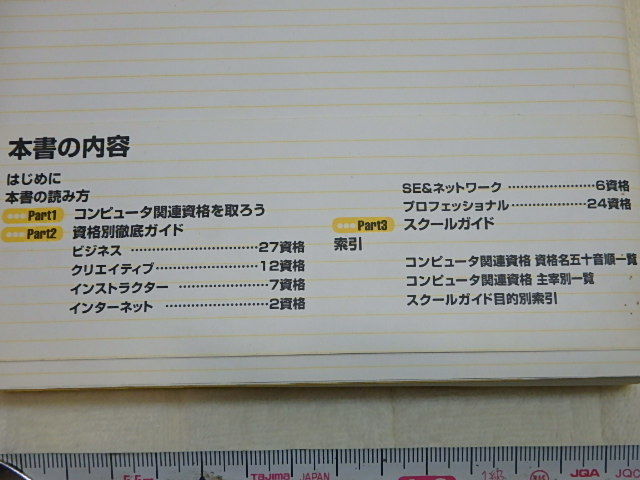 本書の内容
はじめに
本書の読み方
Part1 コンピュータ関連資格を取ろう
Part2 資格別徹底ガイド
ビジネス 27資格
クリエイティブ 12資格
インストラクター 7資格
インターネット 2資格
SE&ネットワーク 6資格
プロフェッショナル 24資格
Part3 スクールガイド
索引
コンピュータ関連資格 資格名五十音順一覧
コンピュータ関連資格 主宰別一覧
スクールガイド目的別索引
Tajima JAPAN 1級 JQA JQC